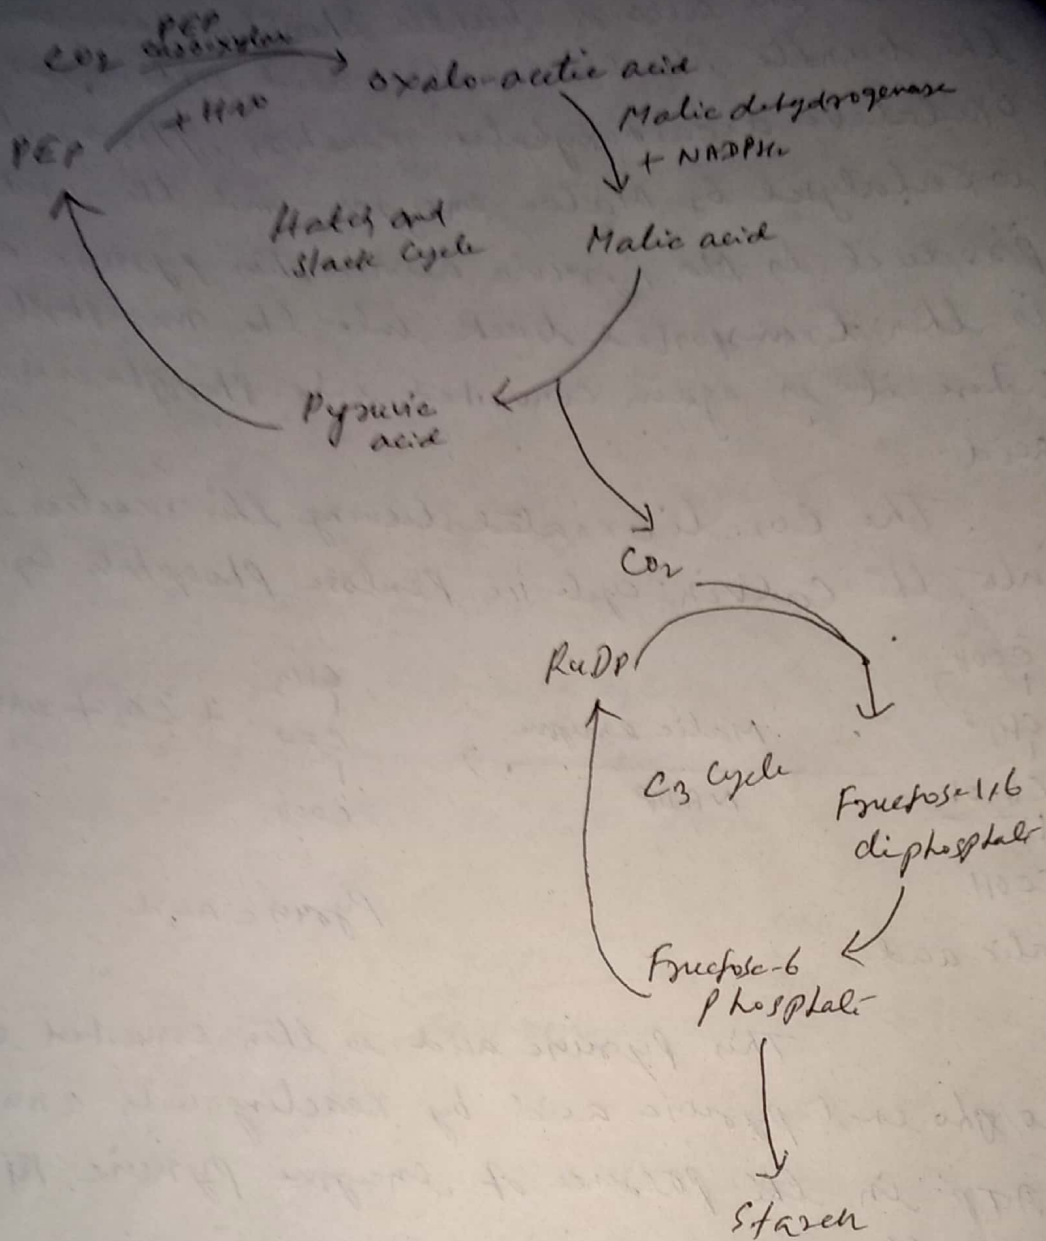 PEP
CO2
+ H2O
Oxalo-acetic acid
Malic dehydrogenase
+ NADPH2
PEP
Hatch and
Slack Cycle
Malic acid
Pyruvic
acid
CO2
RuDP
C3 Cycle
Fructose-1,6
diphosphate
Fructose-6
Phosphate
Starch